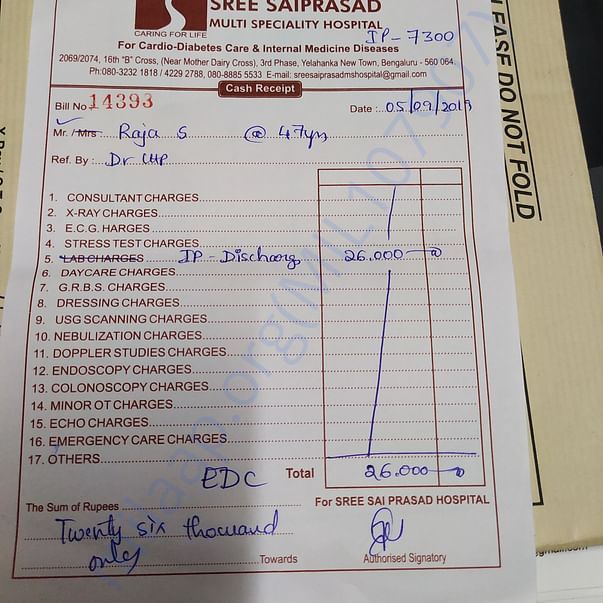 SREE SAIPRASAD
MULTI SPECIALITY HOSPITAL
CARING FOR LIFE
IP-7300
For Cardio-Diabetes Care & Internal Medicine Diseases
2069/2074, 16th "B" Cross, (Near Mother Dairy Cross), 3rd Phase, Yelahanka New Town, Bengaluru - 560 064.
Ph:080-3232 1818 / 4229 2788, 080-8885 5533 E-mail: sreesaiprasadmshospital@gmail.com
Cash Receipt
Bill No. 14393 Date : 05/09/2019
Mr. / Mrs. Raja S @ 47yrs
Ref. By : Dr
1. CONSULTANT CHARGES
2. X-RAY CHARGES
3. E.C.G. HARGES
4. STRESS TEST CHARGES
5. LAB CHARGES IP - Discharg 26.000
6. DAYCARE CHARGES
7. G.R.B.S. CHARGES
8. DRESSING CHARGES
9. USG SCANNING CHARGES
10. NEBULIZATION CHARGES
11. DOPPLER STUDIES CHARGES
12. ENDOSCOPY CHARGES
13. COLONOSCOPY CHARGES
14. MINOR OT CHARGES
15. ECHO CHARGES
16. EMERGENCY CARE CHARGES
17. OTHERS
EDC Total 26.000
The Sum of Rupees For SREE SAI PRASAD HOSPITAL
Twenty six thousand
only
Towards Authorised Signatory
EASE DO NOT FOLD